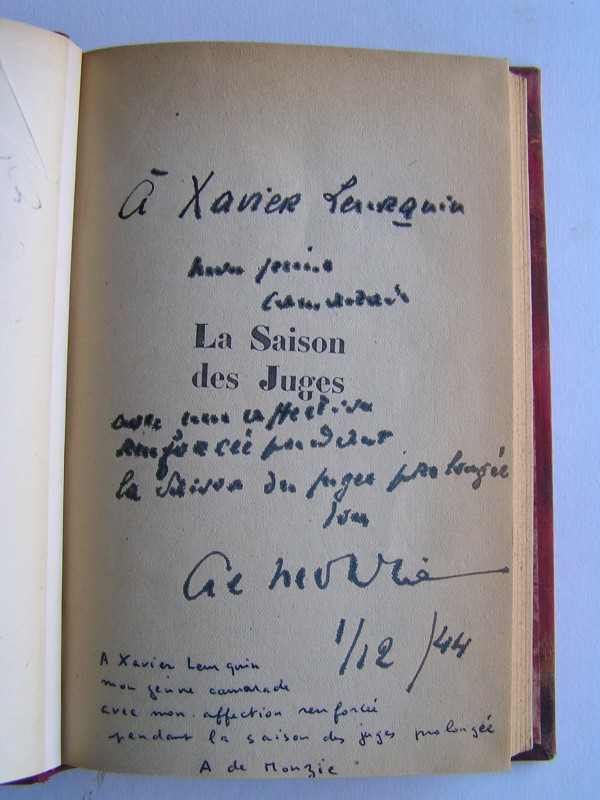 À Xavier Leurquin
mon jeune
camarade
La Saison
des Juges
avec mon affection
renforcée pendant
la Saison des juges prolongée
son
A de Monzie
1/12/44
A Xavier Leurquin
mon jeune camarade
avec mon affection renforcée
pendant la saison des juges prolongée
A de Monzie